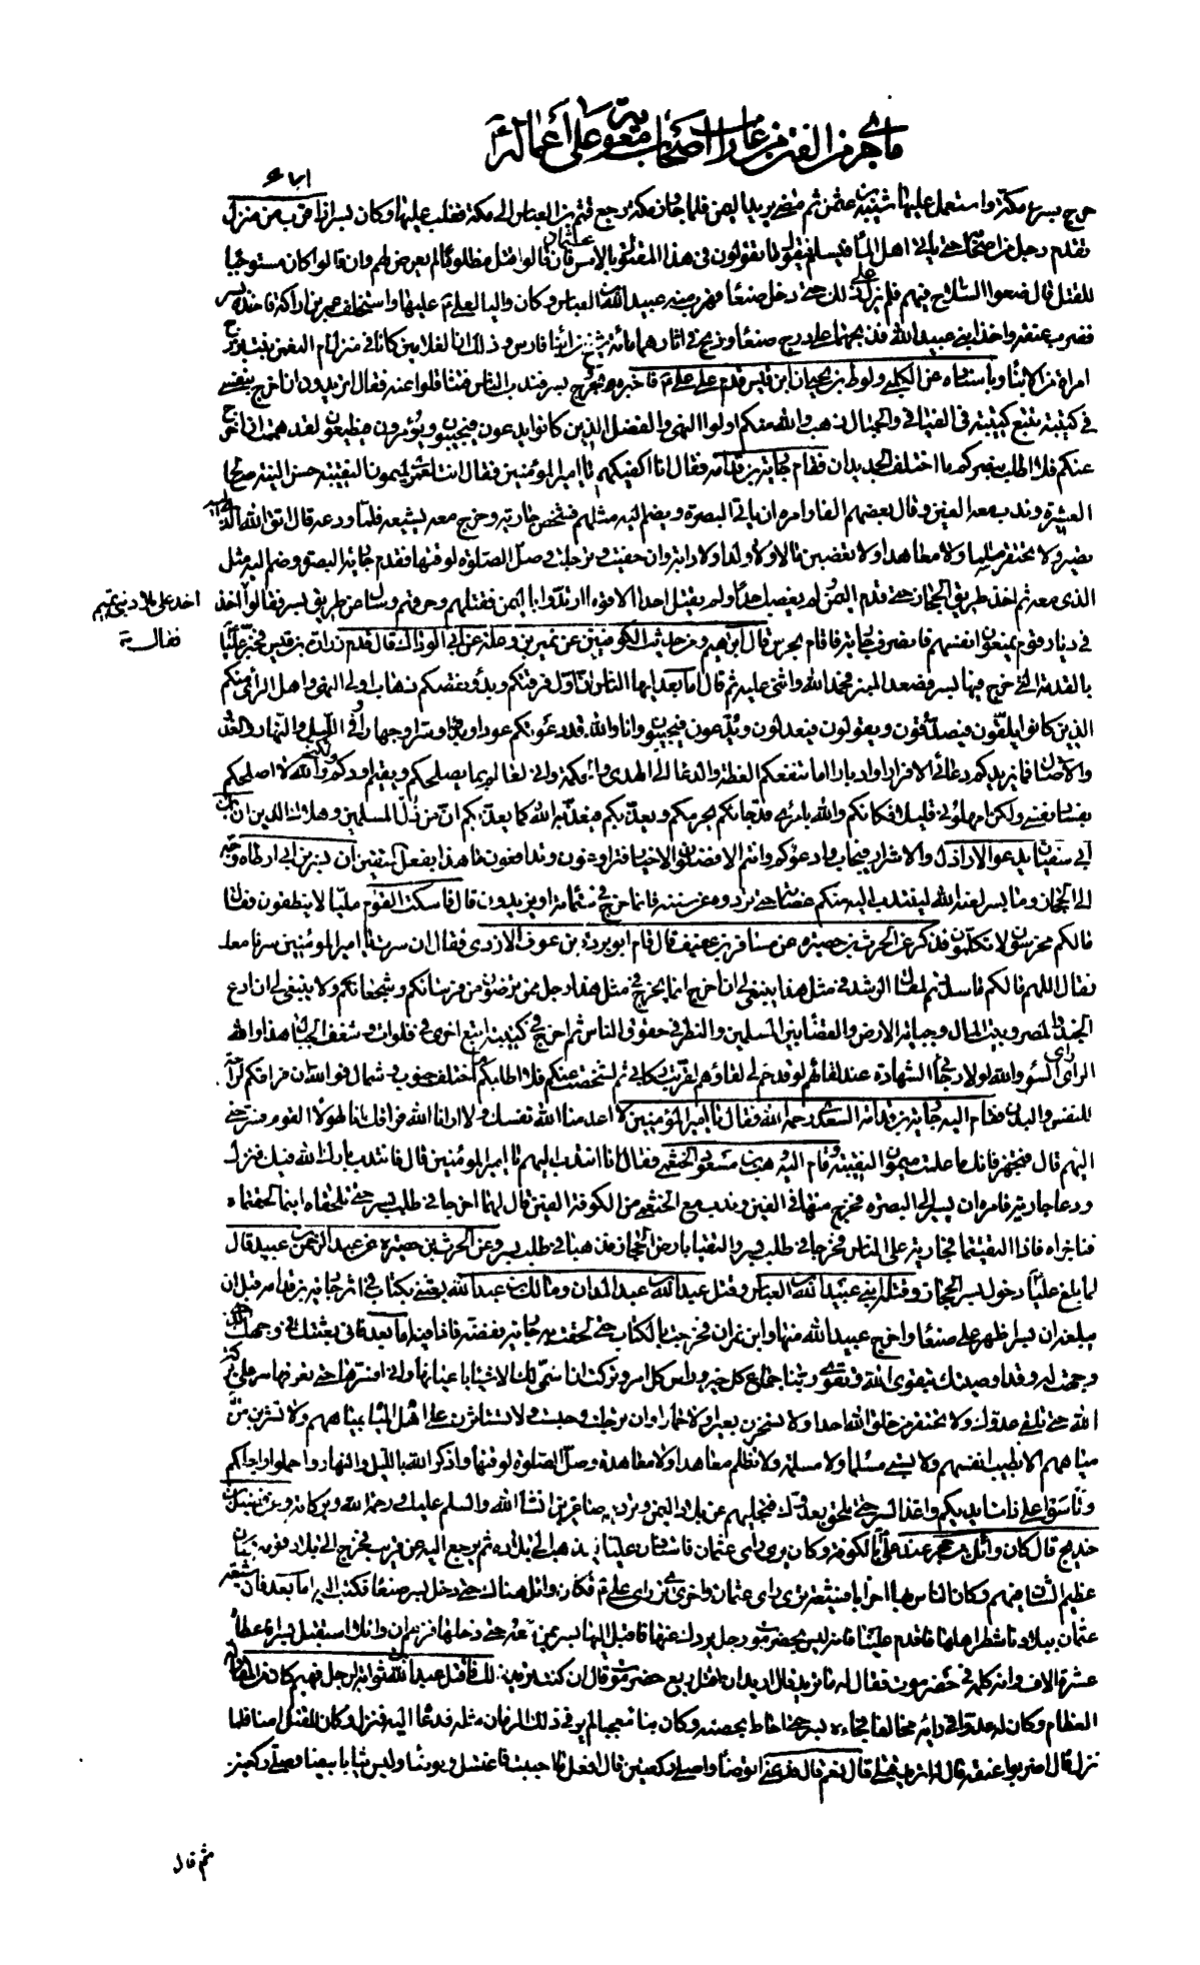 ما جرى من الفتن من غارات اصحاب معوية على اعماله
خرج بسر من مكة واستعمل عليها شيبة بن عثمن ثم مضى يريد اليمن فلما جاوز مكة رجع قثم بن العباس الى مكة فغلب عليها وكان بسر اذا قرب من منزل
تقدم رجل من اصحابه حتى ياتي اهل الماء فيسلم فيقول ما تقولون في هذا المقتول بالامس عثمان فان قالوا قتل مظلوما لم يعرض لهم وان قالوا كان مستوجبا
للقتل قال ضعوا السلاح فيهم فلم يزل على ذلك حتى دخل صنعا فهرب منه عبيد الله بن العباس وكان واليا لعلي ع عليها واستخلف عمرو بن اراكة فاخذه بسر
فضرب عنقه واخذ ابني عبيد الله فذبحهما على درج صنعا وذبح في اثارهما مائة شيخ من ابنا فارس وذلك ان الغلامين كانا في منزل ام النعمن بنت بزرج
امراة من الابنا وباسناده عن الكلبي ولوط بن يحيى ان ابن قيس قدم على علي ع فاخبره بخروج بسر فندب الناس فتثاقلوا عنه فقال اتريدون ان اخرج بنفسي
في كتيبة تتبع كتيبة في الفيافي والجبال ذهب والله منكم اولوا النهى والفضل الذين كانوا يدعون فيجيبون ويؤمرون فيطيعون لقد هممت ان اخرج
عنكم فلا اطلب بنصركم ما اختلف الجديدان فقام جارية بن قدامة فقال انا اكفيكهم يا امير المؤمنين فقال انت لعمري لميمون النقيبة حسن النية صالح
العشيرة وندب معه الفين وقال بعضهم الفا وامره ان ياتي البصرة ويضم اليه مثلهم فشخص جارية وخرج معه يشيعه فلما ودعه قال اتق الله الذي اليه
تصير ولا تحتقر مسلما ولا معاهدا ولا تغصبن مالا ولا ولدا ولا دابة وان حفيت وترجلت وصل الصلوة لوقتها فقدم جارية البصرة وضم اليه مثل
الذي معه ثم اخذ طريق الحجاز حتى قدم اليمن لم يغصب احدا ولم يقتل احدا الا قوما ارتدوا باليمن فقتلهم وحرقهم وسال عن طريق بسر فقالوا اخذ
اخذ على بلاد بني تميم
فقال
في ديار قوم يمنعون انفسهم فانصرف جارية فاقام بجرش قال ابرهيم ومن حديث الكوفيين عن نمير بن وعلة عن ابي الوداك قال قدم زرارة بن قيس فخبر عليا
بالقدمة التي خرج فيها بسر فصعد المنبر فحمد الله واثنى عليه ثم قال اما بعد ايها الناس ان اول فرقتكم وبدؤ نقضكم ذهاب اولي النهى واهل الراي منكم
الذين كانوا يلقون فيصدقون ويقولون فيعدلون ويدعون فيجيبون وانا والله قد دعوتكم عودا وبدءا وسرا وجهارا وفي الليل والنهار والغدو
والاصال فما يزيدكم دعائي الا فرارا وادبارا اما تنفعكم العظة والدعا الى الهدى والحكمة واني لعالم بما يصلحكم ويقيم اودكم ولكني والله لا اصلحكم
بفساد نفسي ولكن امهلوني قليلا فكانكم والله بامرئ قد جائكم يحرمكم ويعذبكم فيعذبه الله كما يعذبكم ان من ذل المسلمين وهلاك الدين ان ابن
ابي سفيان يدعو الاراذل والاشرار فيجاب وادعوكم وانتم الافضلون الاخيار فتراوغون وتدافعون ما هذا بفعل المتقين ان بسر بن ابي ارطاة وجه
الى الحجاز وما بسر لعنه الله لينتدب اليه منكم عصابة حتى تردوه عن سننه فانما خرج في ستمائة او يزيدون قال فاسكت القوم مليا لا ينطقون فقال
مالكم مخرسون لا تكلمون فذكر عن الحرث بن حصيرة عن مسافر بن عفيف قال قام ابو بردة بن عوف الازدي فقال ان سرت يا امير المؤمنين سرنا معك
فقال اللهم مالكم ما سددتم لمقال الرشد في مثل هذا ينبغي لي ان اخرج انما يخرج في مثل هذا رجل ممن ترضون من فرسانكم وشجعانكم ولا ينبغي لي ان ادع
الجند والمصر وبيت المال وجباية الارض والقضا بين المسلمين والنظر في حقوق الناس ثم اخرج في كتيبة اتبع اخرى في فلوات وشغف الجبال هذا والله
الراي السوء والله لولا رجائي الشهادة عند لقائهم لو قد حم لي لقاؤهم لقربت ركابي ثم لشخصت عنكم فلا اطلبكم ما اختلف جنوب وشمال فوالله ان فراقكم لراحة
للنفس والبدن فقام اليه جارية بن قدامة السعدي رحمه الله فقال يا امير المؤمنين لا اعدمنا الله نفسك ولا ارانا الله فراقك انا لهؤلاء القوم فسرحني
اليهم قال فتجهز فانك ما علمت ميمون النقيبة وقام اليه وهب بن مسعود الخثعمي فقال انا انتدب اليهم يا امير المؤمنين قال فانتدب بارك الله فيك فنزل
ودعا جارية فامره ان يسير الى البصرة فخرج منها في الفين وندب مع الخثعمي من الكوفة الفين قال لهما اخرجا في طلب بسر حتى تلحقاه اينما لحقتماه
فناجزاه فاذا التقيتما فجارية على الناس فخرجا في طلب بسر والتقيا بارض الحجاز فذهبا في طلب بسر وعن الحرث بن حصيرة عن عبد الرحمن بن عبيد قال
لما بلغ عليا دخول بسر الحجاز وقتله ابني عبيد الله بن العباس وقتل عبد الله بن عبد المدان ومالك بن عبد الله بعثني بكتاب في اثر جارية بن قدامة قبل ان
يبلغه ان بسرا ظهر على صنعا واخرج عبيد الله منها وابن نمران فخرجت بالكتاب حتى لحقت به جارية ففضه فاذا فيه اما بعد فاني بعثتك في وجهك الذي
وجهت له وقد اوصيتك بتقوى الله وتقوى ربنا جماع كل خير وراس كل امر وتركت ان اسمي لك الاشيا باعيانها واني افسرها حتى تعرفها سر على بركة
الله حتى تلقى عدوك ولا تحتقر من خلق الله احدا ولا تسخرن بعيرا ولا حمارا وان ترجلت وحبست ولا تستاثرن على اهل المياه بمياههم ولا تشربن من
مياههم الا بطيب انفسهم ولا تسبي مسلما ولا مسلمة ولا تظلم معاهدا ولا معاهدة وصل الصلوة لوقتها واذكر الله بالليل والنهار واحملوا راجلكم
وتاسوا على ذات ايديكم واغذ السير حتى تلحق بعدوك فتجليهم عن بلاد اليمن وتردهم صاغرين انشا الله والسلم عليك ورحمة الله وبركاته وعن فضيل بن
خديج قال كان وائل بن حجر عند علي بالكوفة وكان يرى راي عثمان فاستاذن عليا ليذهب الى بلاده ثم يرجع اليه عن قريب فخرج الى بلاد قومه وكان
عظيم الشان فيهم وكان الناس بها احزابا فشيعة ترى راي عثمان واخرى ترى راي علي ع فكان وائل هناك حتى دخل بسر صنعا فكتب اليه اما بعد فان شيعة
عثمان ببلادنا شطر اهلها فاقدم علينا فانه ليس بحضرموت رجل يردك عنها فاقبل اليها بسر بمن معه حتى دخلها فزعم ان وائل استقبل بسرا فاعطاه
عشرة الاف وانه كلمه في حضرموت فقال له ما تريد قال اريد ان اقتل ربع حضرموت قال ان كنت تريد ذلك فاقتل عبد الله بن ثوابة لرجل فيهم كان من المقاولة
العظام وكان له عدوا في رايه مخالفا فجاءه بسر حتى احاط بحصنه وكان بنا معجبا لم ير في ذلك الزمان مثله فدعا اليه فنزل وكان للقتل امنا فلما
نزل قال اضربوا عنقه قال له اتريد قتلي قال نعم قال فدعني اتوضا واصلي ركعتين قال افعل ما احببت فاغتسل وتوضا ولبس ثيابا بيضا وصلى ركعتين
ثم قال